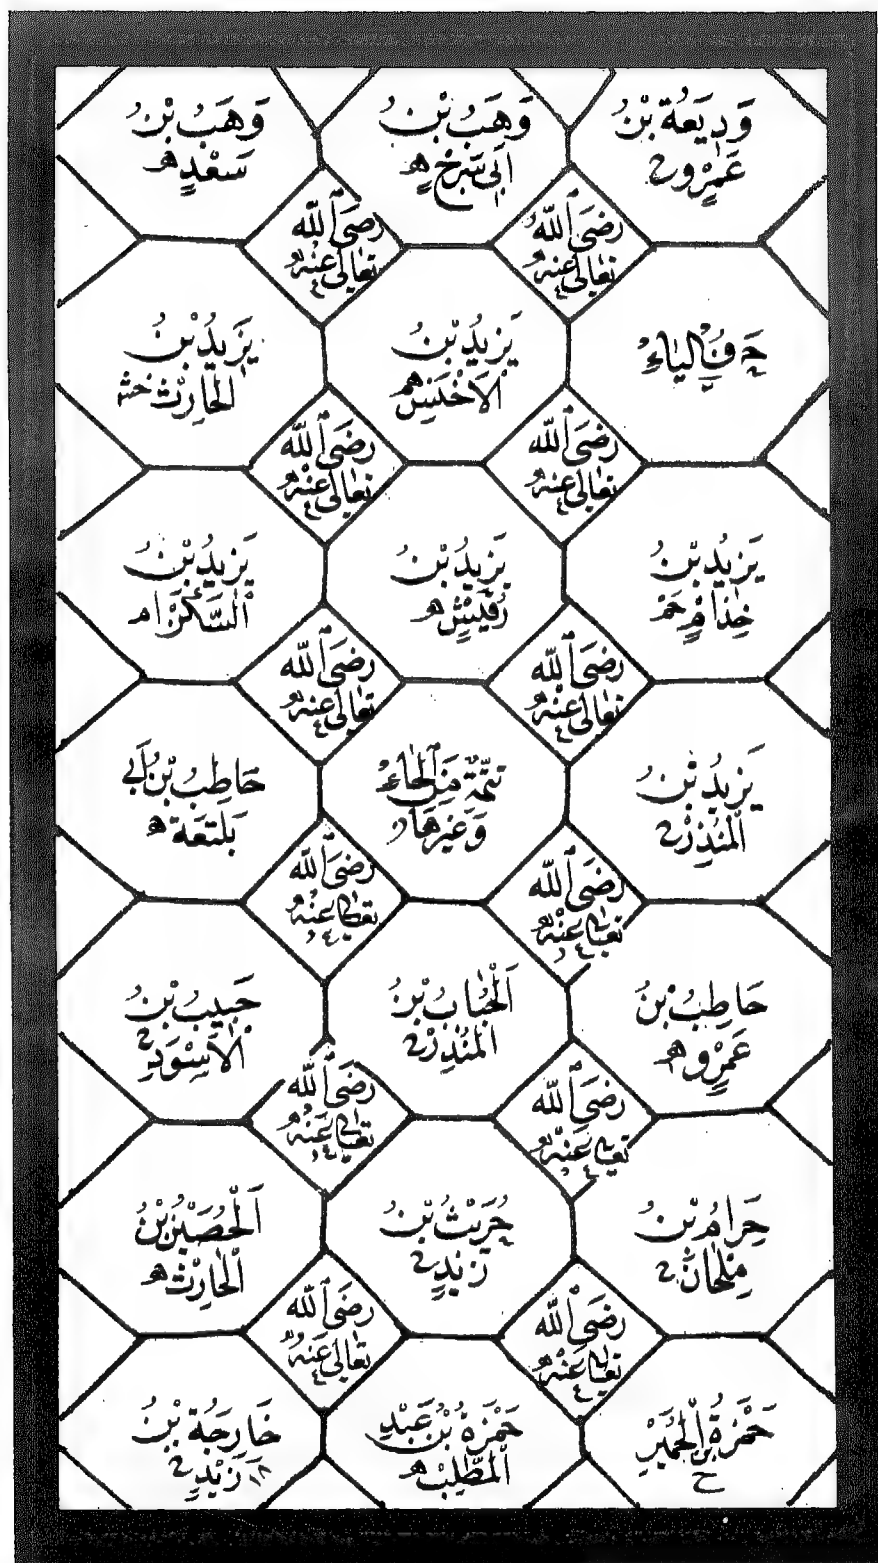 وَدِيعَةُ بْنُ
عَمْرٍو خ
وَهَبُ بْنُ
اَبِى سَرْحٍ هـ
وَهَبُ بْنُ
سَعْدٍ هـ
رَضِىَ اللّٰه
تَعَالٰى عَنْهُ
رَضِىَ اللّٰه
تَعَالٰى عَنْهُ
حَرْفُ الْيَاءِ
يَزِيدُ بْنُ
الْاَخْنَسِ هـم
يَزِيدُ بْنُ
الْحَارِثِ خش
رَضِىَ اللّٰه
تَعَالٰى عَنْهُ
رَضِىَ اللّٰه
تَعَالٰى عَنْهُ
يَزِيدُ بْنُ
خِذَامٍ خم
يَزِيدُ بْنُ
رُقَيْشٍ هـ
يَزِيدُ بْنُ
السَّكَنِ ام
رَضِىَ اللّٰه
تَعَالٰى عَنْهُ
رَضِىَ اللّٰه
تَعَالٰى عَنْهُ
يَزِيدُ بْنُ
الْمُنْذِرِ خ
تَتِمَّةٌ مِنَ الْحَاءِ
وَغَيْرِهَا
حَاطِبُ بْنُ اَبِى
بَلْتَعَةَ هـ
رَضِىَ اللّٰه
تَعَالٰى عَنْهُ
رَضِىَ اللّٰه
تَعَالٰى عَنْهُ
حَاطِبُ بْنُ
عَمْرٍو هـ
اَلْحُبَابُ بْنُ
الْمُنْذِرِ خ
حَبِيبُ بْنُ
الْاَسْوَدِ خ
رَضِىَ اللّٰه
تَعَالٰى عَنْهُ
رَضِىَ اللّٰه
تَعَالٰى عَنْهُ
حَرَامُ بْنُ
مِلْحَانَ خ
حُرَيْثُ بْنُ
زَيْدٍ خ
اَلْحُصَيْنُ بْنُ
الْحَارِثِ هـ
رَضِىَ اللّٰه
تَعَالٰى عَنْهُ
رَضِىَ اللّٰه
تَعَالٰى عَنْهُ
حَمْزَةُ بْنُ الْحُمَيِّرِ
خ
حَمْزَةُ بْنُ عَبْدِ
الْمُطَّلِبِ هـ
خَارِجَةُ بْنُ
زَيْدٍ خ ١٨